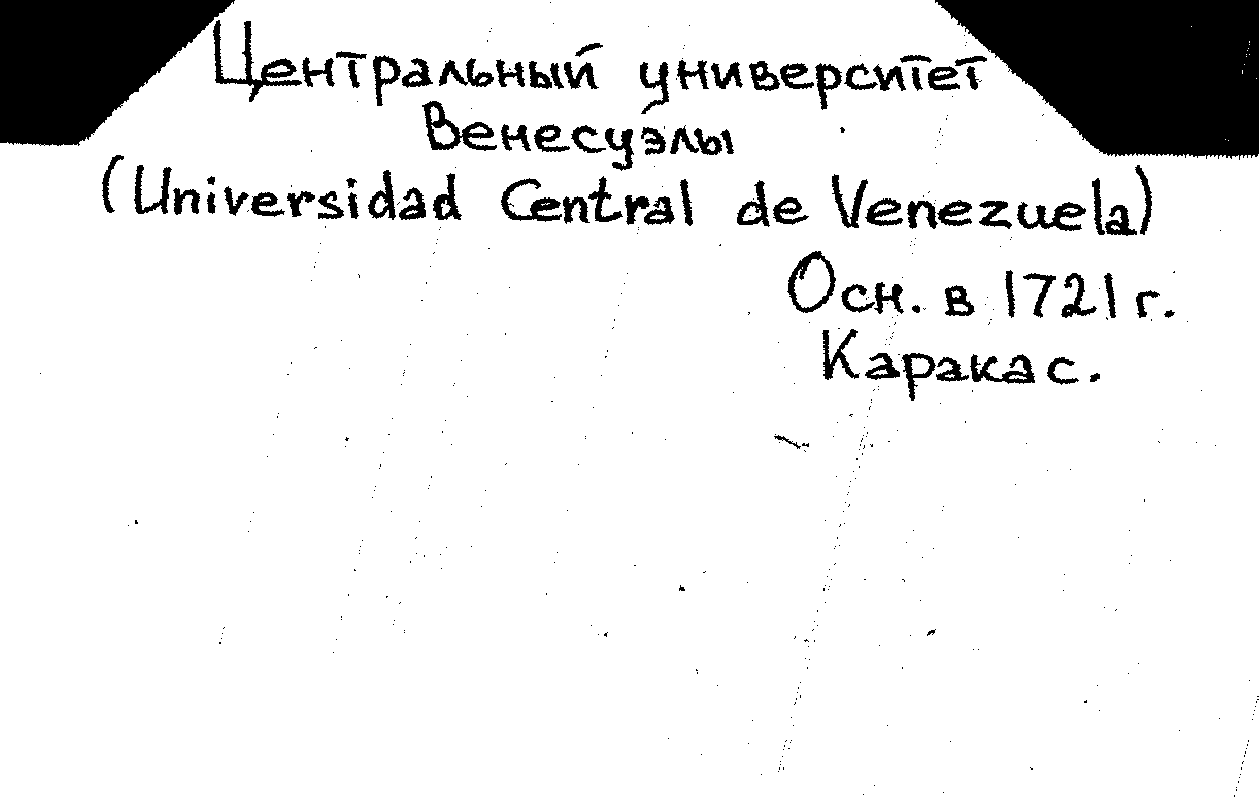 Центральный университет
Венесуэлы
(Universidad Central de Venezuela)
Осн. в 1721 г.
Каракас.